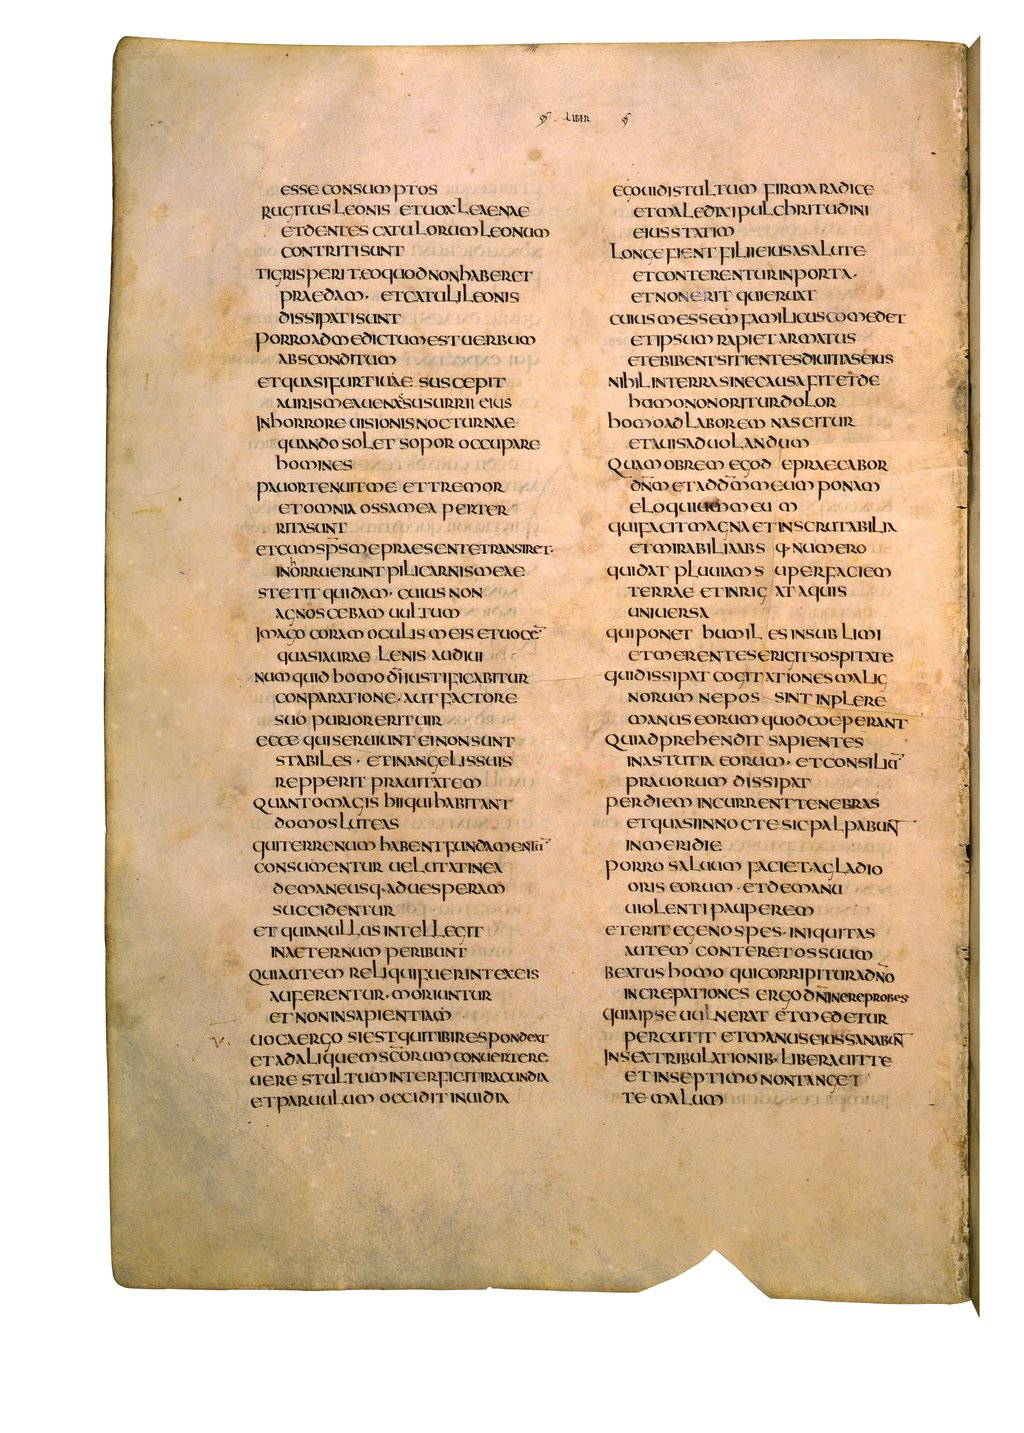 LIBER
ESSE CONSUMPTOS
RUGITUS LEONIS ET UOX LEAENAE
ET DENTES CATULORUM LEONUM
CONTRITI SUNT
TIGRIS PERIIT EO QUOD NON HABERET
PRAEDAM · ET CATULI LEONIS
DISSIPATI SUNT
PORRO AD ME DICTUM EST UERBUM
ABSCONDITUM
ET QUASI FURTIUAE SUSCEPIT
AURIS MEA UENAS SUSURRII EIUS
IN HORRORE UISIONIS NOCTURNAE
QUANDO SOLET SOPOR OCCUPARE
HOMINES
PAUOR TENUIT ME ET TREMOR
ET OMNIA OSSA MEA PERTER
RITA SUNT
ET CUM SPS ME PRAESENTE TRANSIRET ·
INHORRUERUNT PILI CARNIS MEAE
STETIT QUIDAM · CUIUS NON
AGNOSCEBAM UULTUM
IMAGO CORAM OCULIS MEIS ET UOCĒ
QUASI AURAE LENIS AUDIUI
NUMQUID HOMO D̄I IUSTIFICABITUR
CONPARATIONE · AUT FACTORE
SUO PURIOR ERIT UIR
ECCE QUI SERUIUNT EI NON SUNT
STABILES · ET IN ANGELIS SUIS
REPPERIT PRAUITATEM
QUANTO MAGIS HII QUI HABITANT
DOMOS LUTEAS
QUI TERRENUM HABENT FUNDAMENTŪ
CONSUMENTUR UELUT A TINEA
DE MANE USQ · AD UESPERAM
SUCCIDENTUR
ET QUIA NULLUS INTELLEGIT
IN AETERNUM PERIBUNT
QUI AUTEM RELIQUI FUERINT EX EIS
AUFERENTUR · MORIUNTUR
ET NON IN SAPIENTIAM
UOCA ERGO SI EST QUI TIBI RESPONDEAT
ET AD ALIQUEM SC̄ORUM CONUERTERE
UERE STULTUM INTERFICIT IRACUNDIA
ET PARUULUM OCCIDIT INUIDIA
EGO UIDI STULTUM FIRMA RADICE
ET MALEDIXI PULCHRITUDINI
EIUS STATIM
LONGE FIENT FILII EIUS A SALUTE
ET CONTERENTUR IN PORTA ·
ET NON ERIT QUI ERUAT
CUIUS MESSEM FAMILICUS COMEDET
ET IPSUM RAPIET ARMATUS
ET EBIBENT SITIENTES DIUITIAS EIUS
NIHIL IN TERRA SINE CAUSA FIT ET DE
HUMO NON ORITUR DOLOR
HOMO AD LABOREM NASCITUR
ET AUIS AD UOLANDUM
QUAM OBREM EGO DEPRAECABOR
DN̄M ET AD DM̄ MEUM PONAM
ELOQUIUM MEUM
QUI FACIT MAGNA ET INSCRUTABILIA
ET MIRABILIA ABSQ · NUMERO
QUI DAT PLUUIAM SUPER FACIEM
TERRAE ET INRIGAT AQUIS
UNIUERSA
QUI PONET HUMILES IN SUBLIMI
ET MERENTES ERIGIT SOSPITATE
QUI DISSIPAT COGITATIONES MALIG
NORUM NE POSSINT INPLERE
MANUS EORUM QUOD COEPERANT
QUI ADPREHENDIT SAPIENTES
IN ASTUTIA EORUM · ET CONSILIŪ
PRAUORUM DISSIPAT
PER DIEM INCURRENT TENEBRAS
ET QUASI IN NOCTE SIC PALPABUN̄
IN MERIDIE
PORRO SALUUM FACIET A GLADIO
ORIS EORUM · ET DE MANU
UIOLENTI PAUPEREM
ET ERIT EGENO SPES · INIQUITAS
AUTEM CONTERET OS SUUM
BEATUS HOMO QUI CORRIPITUR A DN̄O
INCREPATIONES ERGO DN̄I NE REPROBES
QUIA IPSE UULNERAT ET MEDETUR
PERCUTIT ET MANUS EIUS SANABUN̄
IN SEX TRIBULATIONIB · LIBERAUIT TE
ET IN SEPTIMO NON TANGET
TE MALUM